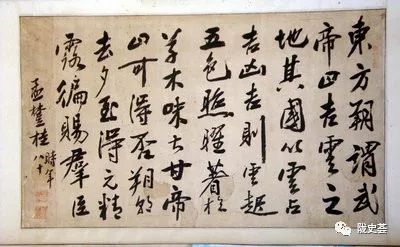 東方朔謂武
帝曰吉雲之
地其國以雲占
吉凶吉則雲起
五色照曜著於
草木味如甘帝
曰可得否朔朝
去夕至得元精
露徧賜羣臣
桂 時年八十
陇史荟